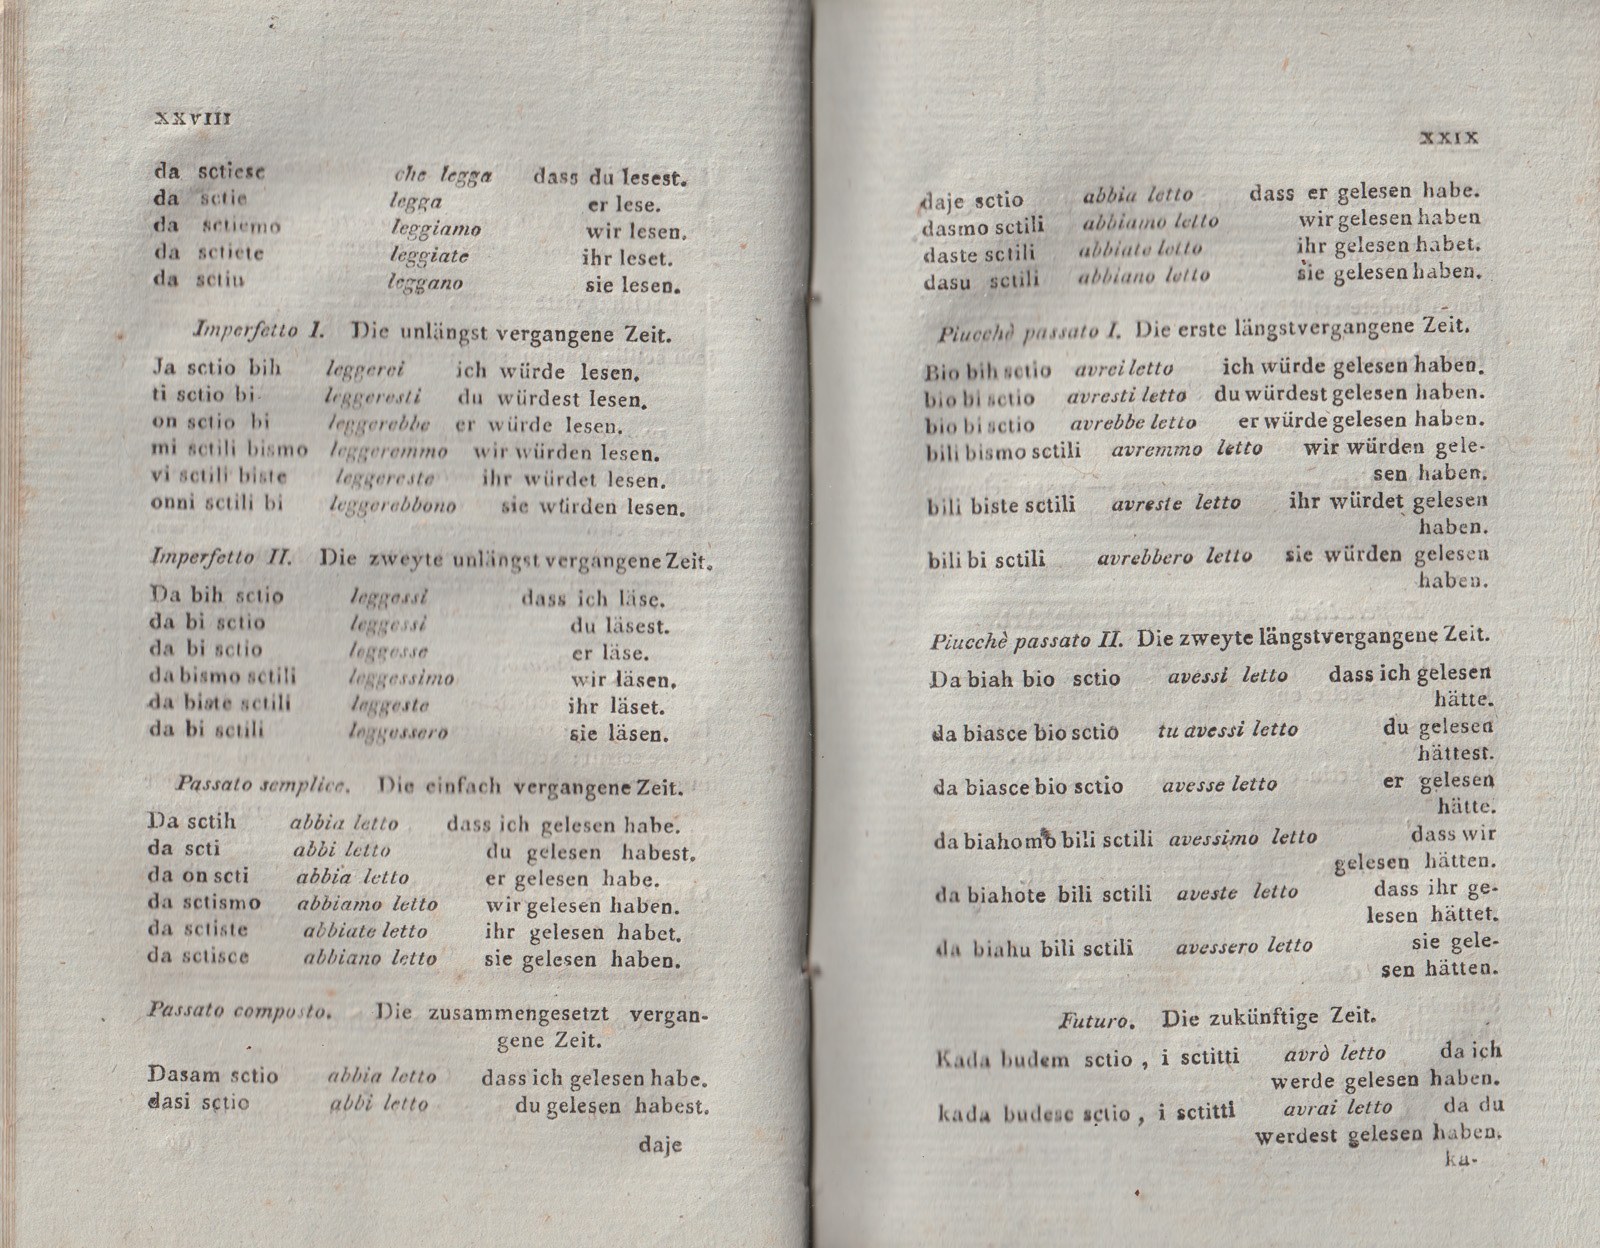 XXVIII
da sctiese che legga dass du lesest.
da sctie legga er lese.
da sctiemo leggiamo wir lesen.
da sctiete leggiate ihr leset.
da sctiu leggano sie lesen.
Imperfetto I. Die unlängst vergangene Zeit.
Ja sctio bih leggerei ich würde lesen.
ti sctio bi leggeresti du würdest lesen.
on sctio bi leggerebbe er würde lesen.
mi sctili bismo leggeremmo wir würden lesen.
vi sctili biste leggereste ihr würdet lesen.
onni sctili bi leggerebbono sie würden lesen.
Imperfetto II. Die zweyte unlängst vergangene Zeit.
Da bih sctio leggessi dass ich läse.
da bi sctio leggessi du läsest.
da bi sctio leggesse er läse.
da bismo sctili leggessimo wir läsen.
da biste sctili leggeste ihr läset.
da bi sctili leggessero sie läsen.
Passato semplice. Die einfach vergangene Zeit.
Da sctih abbia letto dass ich gelesen habe.
da scti abbi letto du gelesen habest.
da on scti abbia letto er gelesen habe.
da sctismo abbiamo letto wir gelesen haben.
da sctiste abbiate letto ihr gelesen habet.
da sctisce abbiano letto sie gelesen haben.
Passato composto. Die zusammengesetzt vergan-
gene Zeit.
Dasam sctio abbia letto dass ich gelesen habe.
dasi sctio abbi letto du gelesen habest.
daje
XXIX
daje sctio abbia letto dass er gelesen habe.
dasmo sctili abbiamo letto wir gelesen haben
daste sctili abbiate letto ihr gelesen habet.
dasu sctili abbiano letto sie gelesen haben.
Piucchè passato I. Die erste längstvergangene Zeit.
Bio bih sctio avrei letto ich würde gelesen haben.
bio bi sctio avresti letto du würdest gelesen haben.
bio bi sctio avrebbe letto er würde gelesen haben.
bili bismo sctili avremmo letto wir würden gele-
sen haben.
bili biste sctili avreste letto ihr würdet gelesen
haben.
bili bi sctili avrebbero letto sie würden gelesen
haben.
Piucchè passato II. Die zweyte längstvergangene Zeit.
Da biah bio sctio avessi letto dass ich gelesen
hätte.
da biasce bio sctio tu avessi letto du gelesen
hättest.
da biasce bio sctio avesse letto er gelesen
hätte.
da biahomo bili sctili avessimo letto dass wir
gelesen hätten.
da biahote bili sctili aveste letto dass ihr ge-
lesen hättet.
da biahu bili sctili avessero letto sie gele-
sen hätten.
Futuro. Die zukünftige Zeit.
Kada budem sctio, i sctitti avrò letto da ich
werde gelesen haben.
kada budesc sctio, i sctitti avrai letto da du
werdest gelesen haben.
ka-